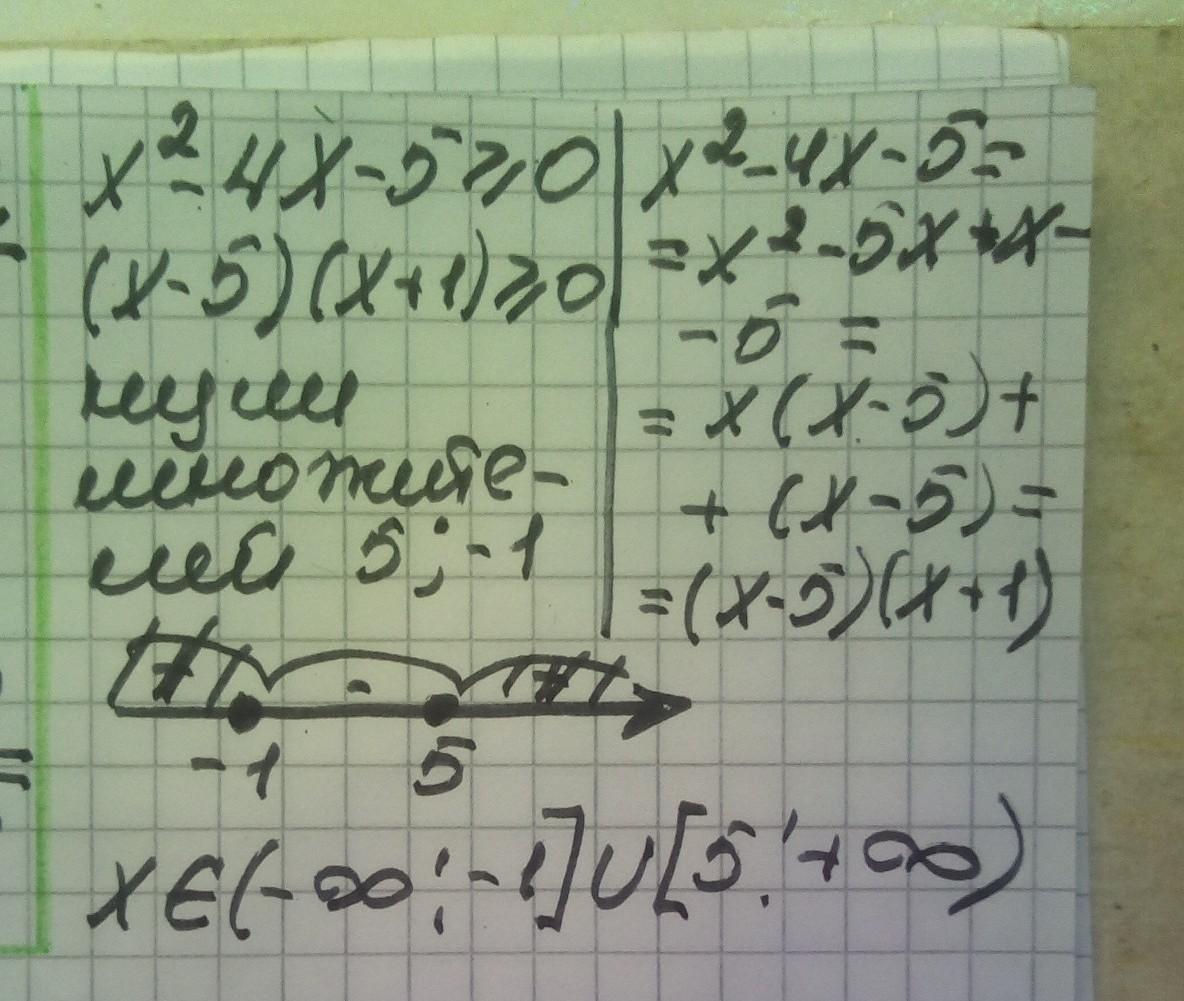 x² - 4x - 5 ⩾ 0
(x - 5)(x + 1) ⩾ 0
нули
множите-
лей 5; -1
x² - 4x - 5 =
= x² - 5x + x -
- 5 =
= x(x - 5) +
+ (x - 5) =
= (x - 5)(x + 1)
+ - +
-1 5
x ∈ (-∞; -1] ∪ [5; +∞)